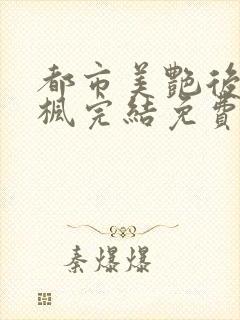 都市美艷後
楓完結免費
秦爆爆